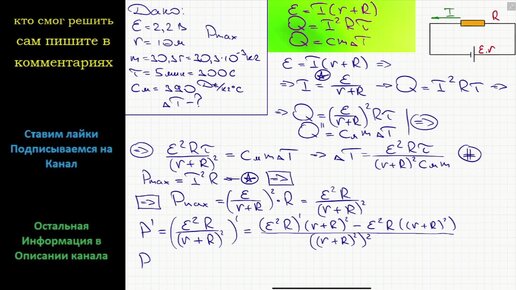 кто смог решить
сам пишите в
комментариях
Ставим лайки
Подписываемся на
Канал
Остальная
Информация в
Описании канала
Дано:
ℰ=2,2В
r=1Ом Pmax
m=10,1г=10,1·10⁻³кг
τ=5мин=300с
Cм=390 Дж/кг°C
ΔT-?
ℰ=I(r+R)
Q=I²Rτ
Q=cmΔT
I R
ℰ,r
ℰ=I(r+R) ⇒
⇒ I=ℰ/(r+R) ⇒ Q=I²Rτ ⇒
⇒ Q=(ℰ/(r+R))²Rτ
Q=CмmΔT |⇒
⇒ ℰ²Rτ/(r+R)²=CмmΔT ⇒ ΔT=ℰ²Rτ/((r+R)²Cмm)
Pmax=I²R ⇒
⇒ Pmax=(ℰ/(r+R))²·R=ℰ²R/(r+R)²
P'=(ℰ²R/(r+R)²)'=((ℰ²R)'(r+R)²-ℰ²R((r+R)²)')/((r+R)²)²
P